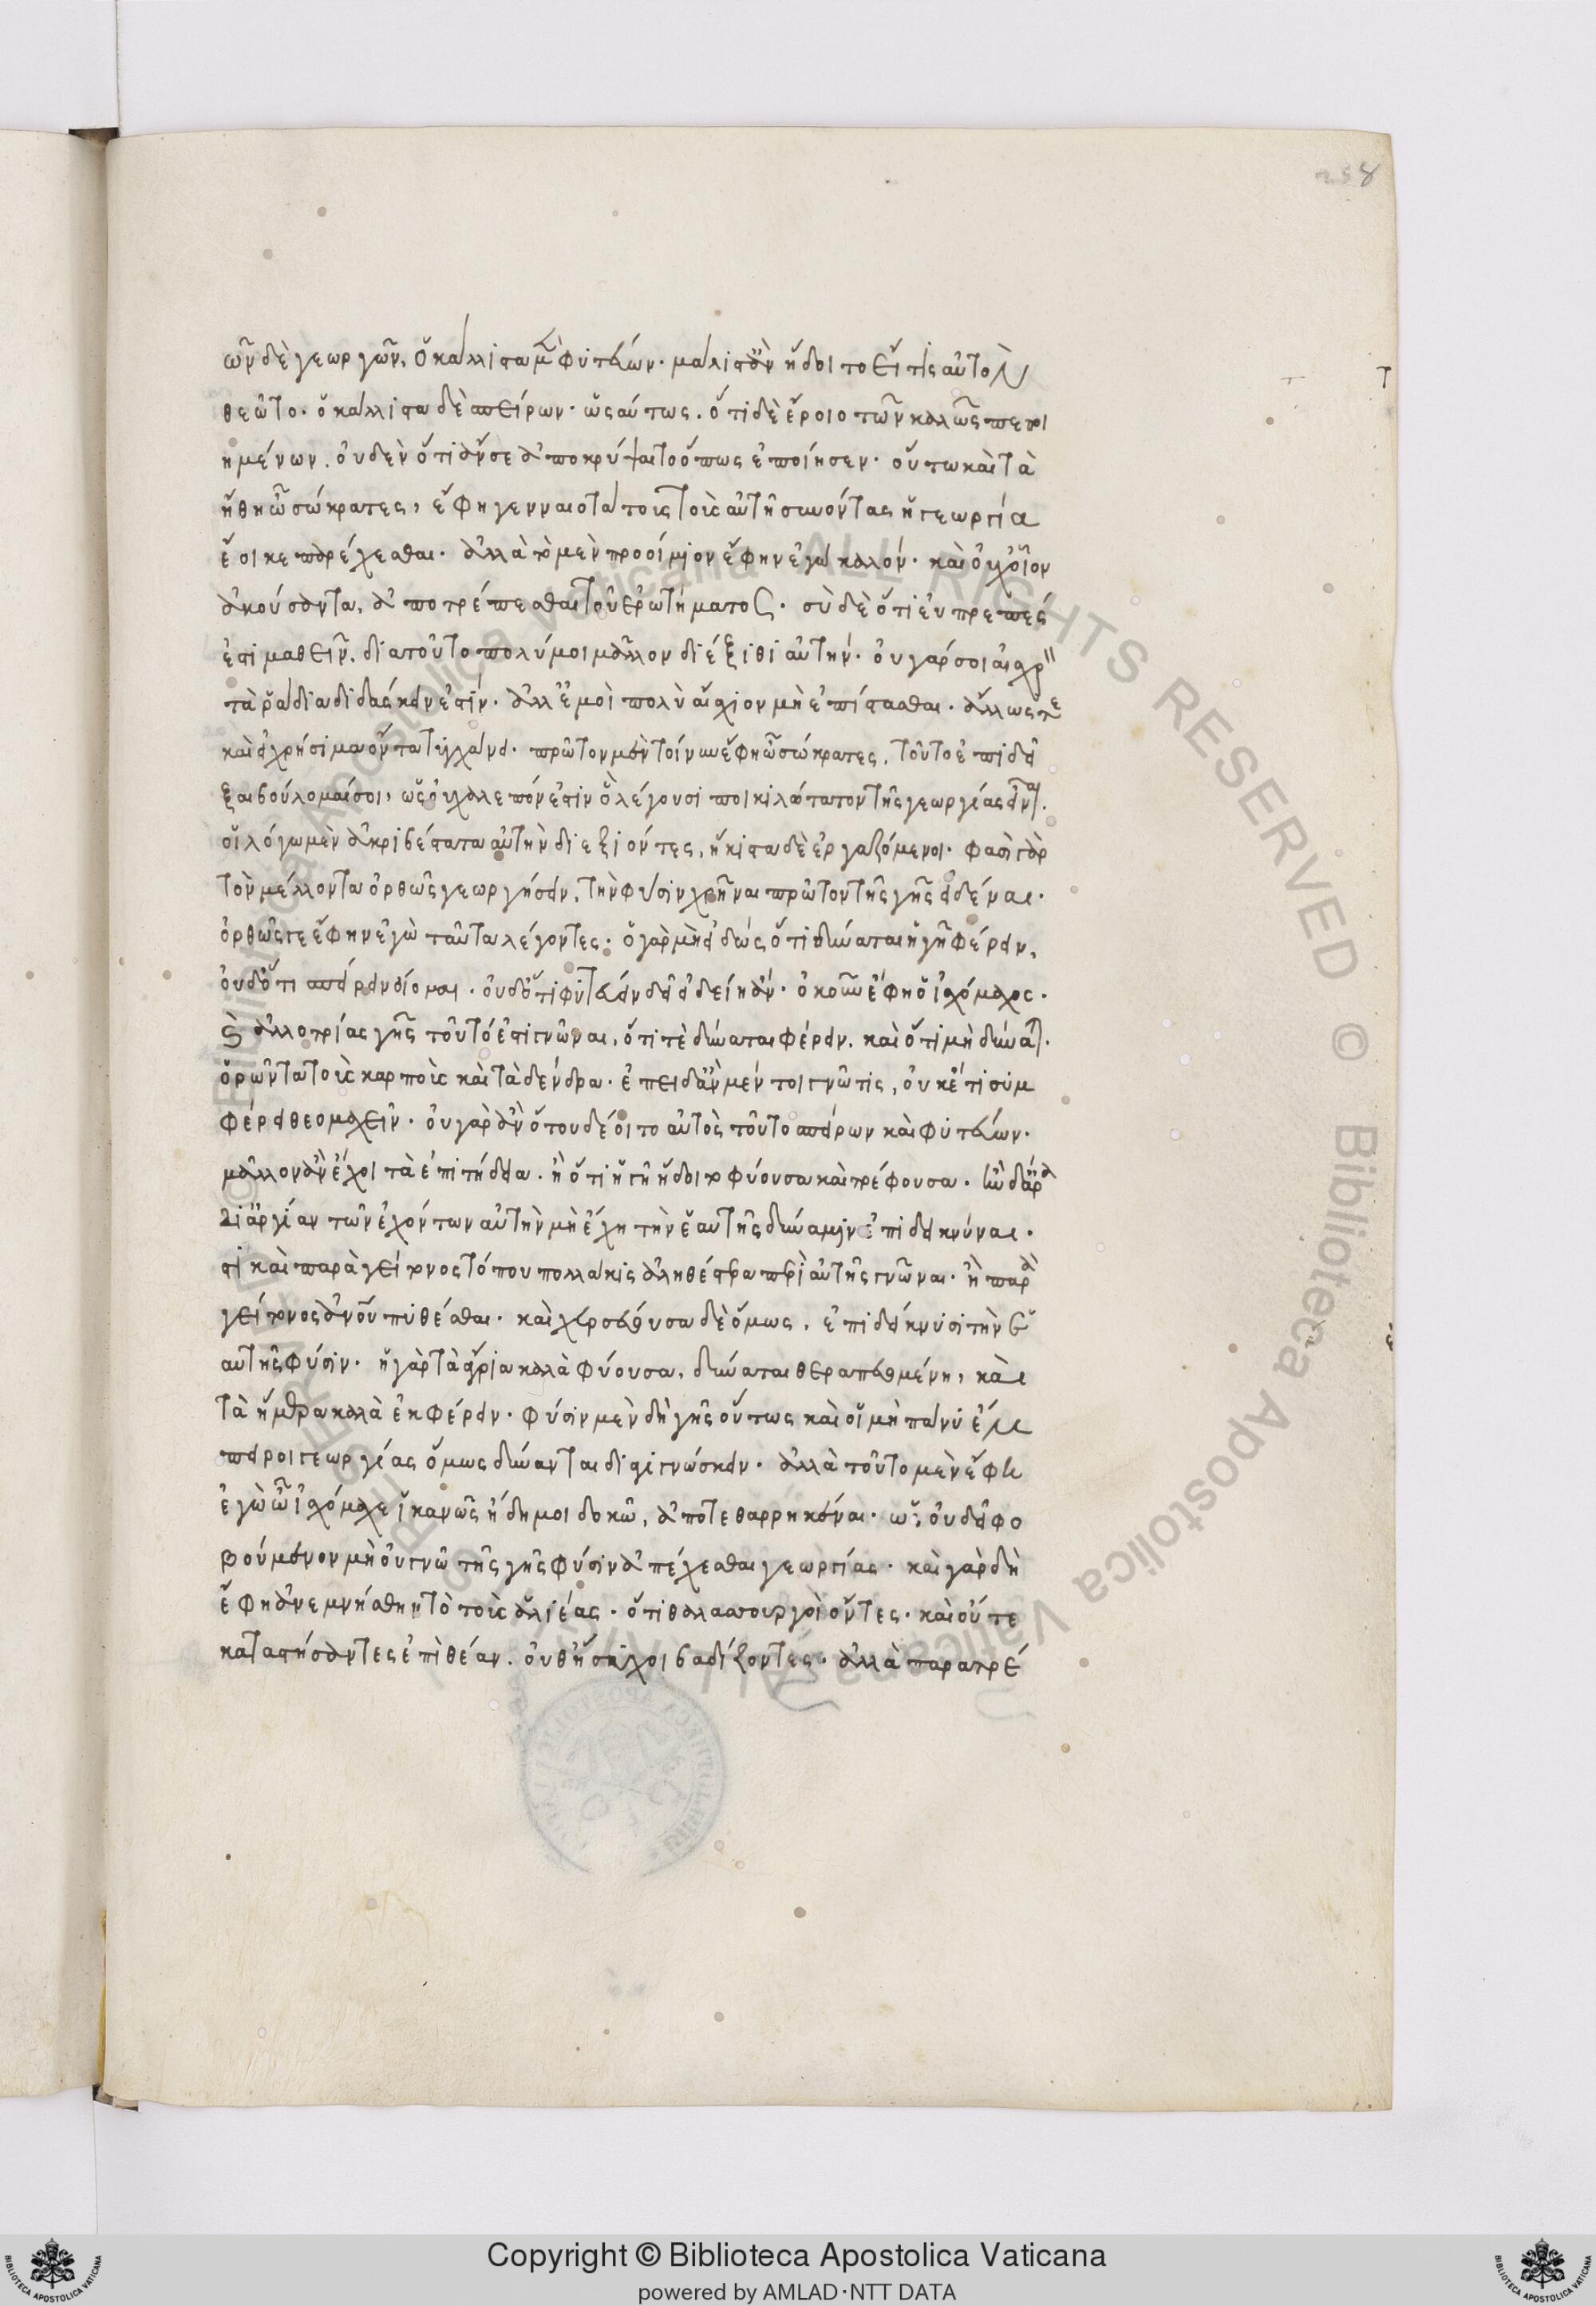 258
ῶν δὲ γεωργῶν, ὁ κάλλιστα μὲν φυτεύων· μάλιστ' ἂν ἥδοιτο εἴ τις αὐτὸν
θεῷτο· ὁ κάλλιστα δὲ σπείρων· ὡσαύτως. ὅ τι δὲ ἔροιο τῶν καλῶς πεποι
ημένων. οὐδὲν ὅ τι ἄν σε ἀποκρύψαιτο ὅπως ἐποίησεν· οὕτω καὶ τὰ
ἤθη ὦ σώκρατες, ἔφη γενναιοτάτους τοὺς αὐτῇ συνόντας ἡ γεωργία
ἔοικε παρέχεσθαι· ἀλλὰ τὸ μὲν προοίμιον ἔφην ἐγὼ καλόν· καὶ οὐχ οἷον
ἀκούσαντα, ἀποτρέπεσθαι τοῦ ἐρωτήματος· σὺ δὲ ὅτι εὐπρεπές
ἐστι μαθεῖν, διὰ τοῦτο πολύ μοι μᾶλλον διέξιθι αὐτήν· οὐ γάρ σοι αἰσχρὸν
τὰ ῥᾴδια διδάσκειν ἐστίν· ἀλλ' ἐμοὶ πολὺ αἴσχιον μὴ ἐπίστασθαι· ἄλλως τε
καὶ εἰ χρήσιμα ὄντα τυγχάνει· πρῶτον μὲν τοίνυν ἔφη ὦ σώκρατες, τοῦτο ἐπιδεῖ
ξαι βούλομαί σοι, ὡς οὐ χαλεπόν ἐστιν ὃ λέγουσι ποικιλώτατον τῆς γεωργίας εἶναι.
οἱ λόγῳ μὲν ἀκριβέστατα αὐτὴν διεξιόντες, ἥκιστα δὲ ἐργαζόμενοι· φασὶ γὰρ
τὸν μέλλοντα ὀρθῶς γεωργήσειν, τὴν φύσιν χρῆναι πρῶτον τῆς γῆς εἰδέναι·
ὀρθῶς γε ἔφην ἐγὼ ταῦτα λέγοντες· ὁ γὰρ μὴ εἰδὼς ὅ τι δύναται ἡ γῆ φέρειν,
οὐδ' ὅ τι σπείρειν οἴομαι· οὐδ' ὅ τι φυτεύειν δεῖ εἰδείη ἄν· οὐκοῦν ἔφη ὁ ἰσχόμαχος·
καὶ ἀλλοτρίας γῆς τοῦτό ἐστι γνῶναι, ὅ τι τὲ δύναται φέρειν. καὶ ὅ τι μὴ δύναται·
ὁρῶντα τοὺς καρποὺς καὶ τὰ δένδρα· ἐπειδὰν μέν τοι γνῷ τις, οὐκέτι συμ
φέρει θεομαχεῖν· οὐ γὰρ ἂν ὅτου δέοιτο αὐτὸς τοῦτο σπείρων καὶ φυτεύων·
μᾶλλον ἂν ἔχοι τὰ ἐπιτήδεια· ἢ ὅ τι ἡ γῆ ἥδοιτο φύουσα καὶ τρέφουσα· ἢν δ' ἄρα
δι' ἀργίαν τῶν ἐχόντων αὐτὴν μὴ ἔχῃ τὴν ἑαυτῆς δύναμιν ἐπιδεικνύναι·
ἔστι καὶ παρὰ γείτονος τόπου πολλάκις ἀληθέστερα περὶ αὐτῆς γνῶναι· ἢ παρὰ
γείτονος ἀνθρώπου πυθέσθαι· καὶ χερσεύουσα δὲ ὅμως, ἐπιδείκνυσι τὴν ἑ
αυτῆς φύσιν· ἡ γὰρ τὰ ἄγρια καλὰ φύουσα, δύναται θεραπευομένη, καὶ
τὰ ἥμερα καλὰ ἐκφέρειν· φύσιν μὲν δὴ γῆς οὕτως καὶ οἱ μὴ πάνυ ἔμ
πειροι γεωργίας ὅμως δύνανται διαγιγνώσκειν· ἀλλὰ τοῦτο μὲν ἔφην
ἐγὼ ὦ ἰσχόμαχε ἱκανῶς ἤδη μοι δοκῶ, ἀποτεθαρρηκέναι· ὡς οὐ δεῖ φο
βούμενον μὴ οὐ γνῶ τῆς γῆς φύσιν ἀπέχεσθαι γεωργίας· καὶ γὰρ δὴ
ἔφη ἀνεμνήσθην τὸ τοὺς ἁλιέας· ὅτι θαλασσουργοὶ ὄντες· καὶ οὔτε
καταστήσαντες ἐπὶ θέαν. οὔθ' ἥσυχοι βαδίζοντες· ἀλλὰ παρατρέ
Copyright © Biblioteca Apostolica Vaticana
powered by AMLAD·NTT DATA